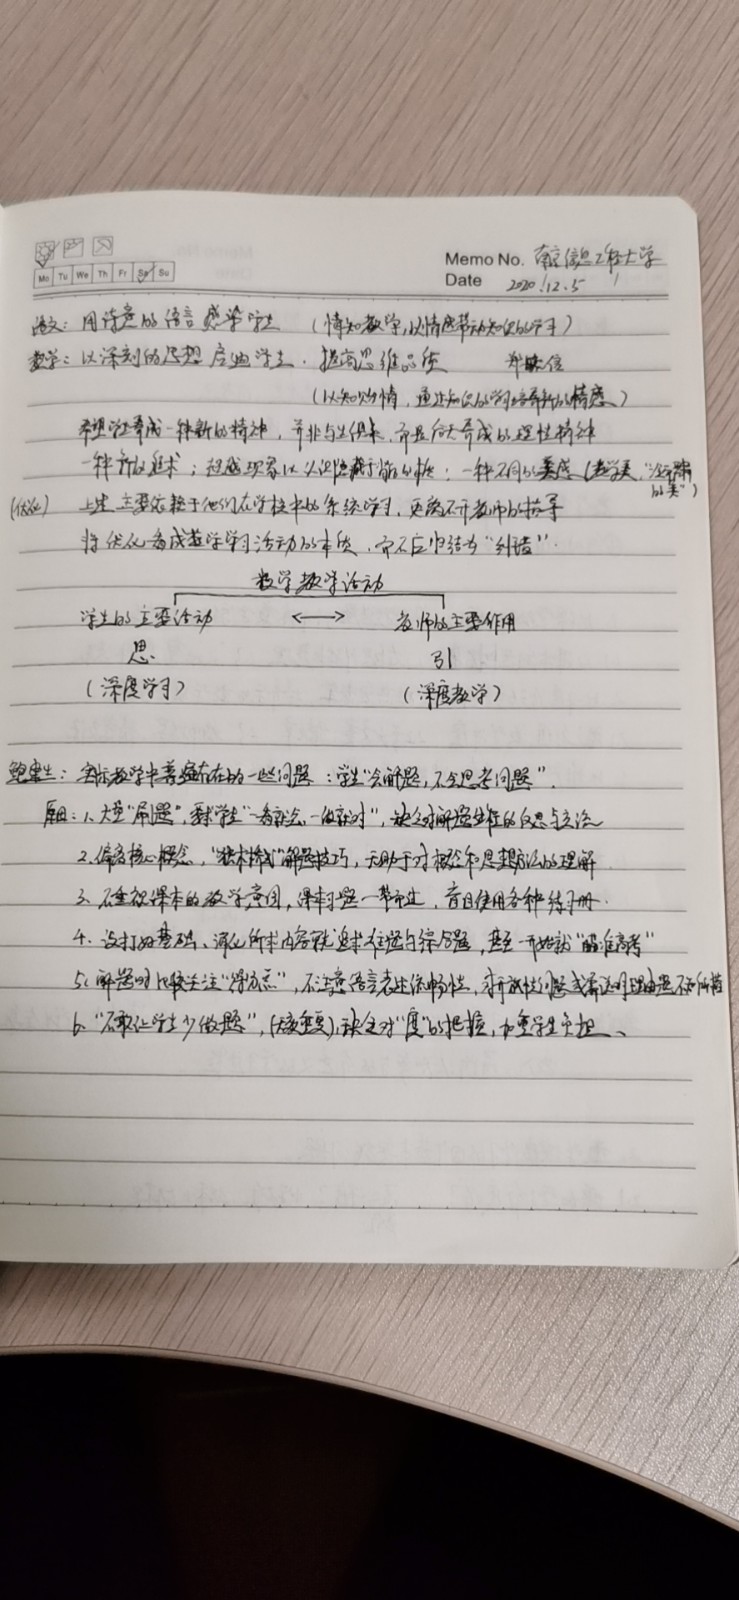 Memo No. 南京信息工程大学
Mo Tu We Th Fr Sa Su
Date 2020.12.5
语文：用诗意的语言感染学生 （情知教学，以情感带动知识的学习）
数学：以深刻的思想启迪学生，提高思维品质 郑毓信
（以知怡情，通过知识的学习培养新的情感）
希望学生养成一种新的精神，并非与生俱来，而是后天养成的理性精神
一种新的追求；超越现象以认识隐藏于背后的本质；一种不同的美感（数学美，“冷而严肃的美”）
（优化） 上述主要依赖于他们在学校中的系统学习，更离不开教师的指导
将优化看成数学学习活动的本质，而不应归结为“纠错”.
数学教学活动
学生的主要活动 ⟷ 教师的主要作用
思 引
（深度学习） （深度教学）
鲍建生：实际教学中普遍存在的一些问题：学生“会解题，不会思考问题”.
原因：1、大量“刷题”，要求学生“一看就会，一做就对”，缺乏对解题过程的反思与交流
2、偏离核心概念，“技术掺杂”解题技巧，无助于对概念和思想方法的理解
3、不重视课本的教学意图，课本习题一带而过，盲目使用各种练习册.
4、没打好基础、深化所求内容就追求难题与综合题，甚至一开始就“瞄准高考”
5、解题时比较关注“得分点”，不注意语言表述流畅性，对开放性问题或需说明理由题不知所措
6、“不敢让学生少做题”，（太多重复），缺乏对“度”的把握，加重学生负担、